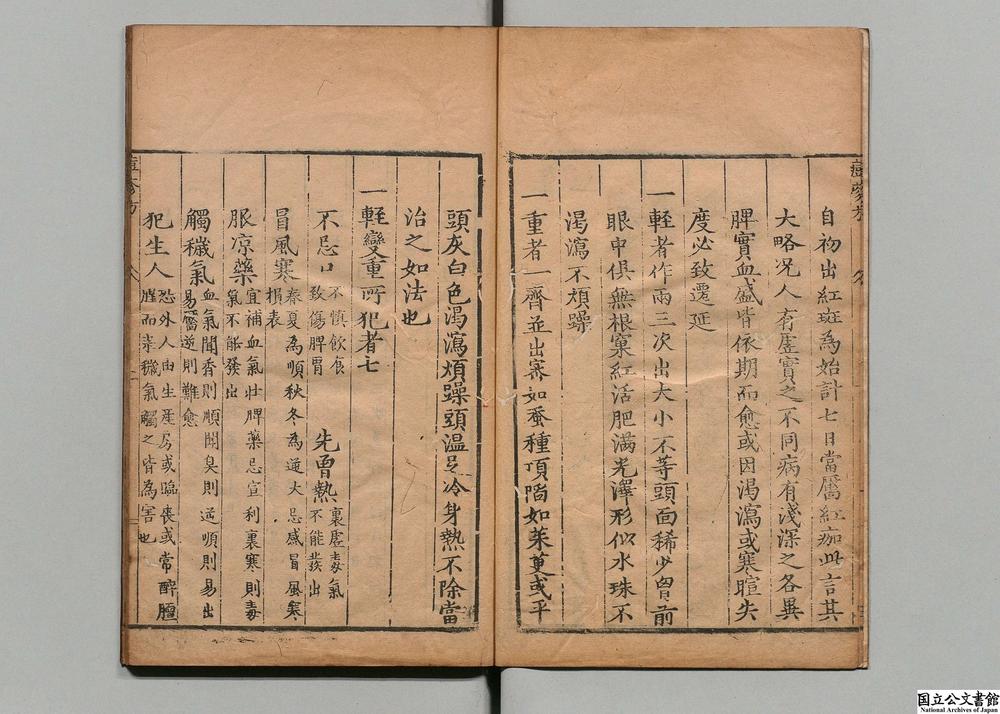 自初出紅斑為始計七日當靨紅痂此言其
大略况人有虛實之不同病有淺深之各異
脾實血盛皆依期而愈或因渴瀉或寒暄失
度必致遷延
一輕者作兩三次出大小不等頭面稀少胷前
眼中俱無根窠紅活肥滿光澤形似水珠不
渴瀉不煩躁
一重者一齊並出密如蚕種項陷如茱萸或平
頭灰白色渴瀉煩躁頭温足冷身熱不除當
治之如法也
一輕變重所犯者七
不忌口 不慎飲食致傷脾胃 先曾熱 裏虛毒氣不能發出
冒風寒 春夏為順秋冬為逆大忌感冒風寒損表
服凉藥 宜補血氣壯脾藥忌宣利裏寒則毒氣不能發出
觸穢氣 血氣聞香則順聞臭則逆順則易出易靨逆則難愈
犯生人 恐外人由生産房或臨喪或常醉膻腥而来穢氣觸之皆為害也
痘疹方
国立公文書館
National Archives of Japan